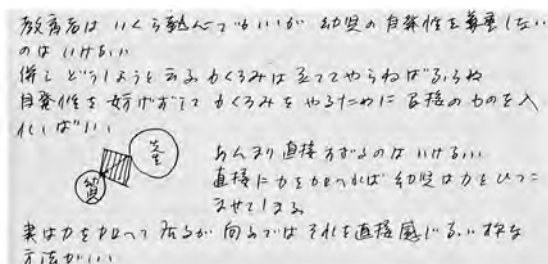 教育者は いくら勢んでもいいが 幼児の自発性を尊重しない
のは いけない
併し どうしようと云う もくろみは 立ててやらねばならぬ
自発性を 妨げずして もくろみを やるために 直接の力を入
れればいい
先生
幼児
あんまり 直接すぎるのは いけない
直接に 力を加へれば 幼児は力をひっこ
ませてしまう
実は力を加へて 居るが 向うでは それを直接感じない 様な
方法がいい